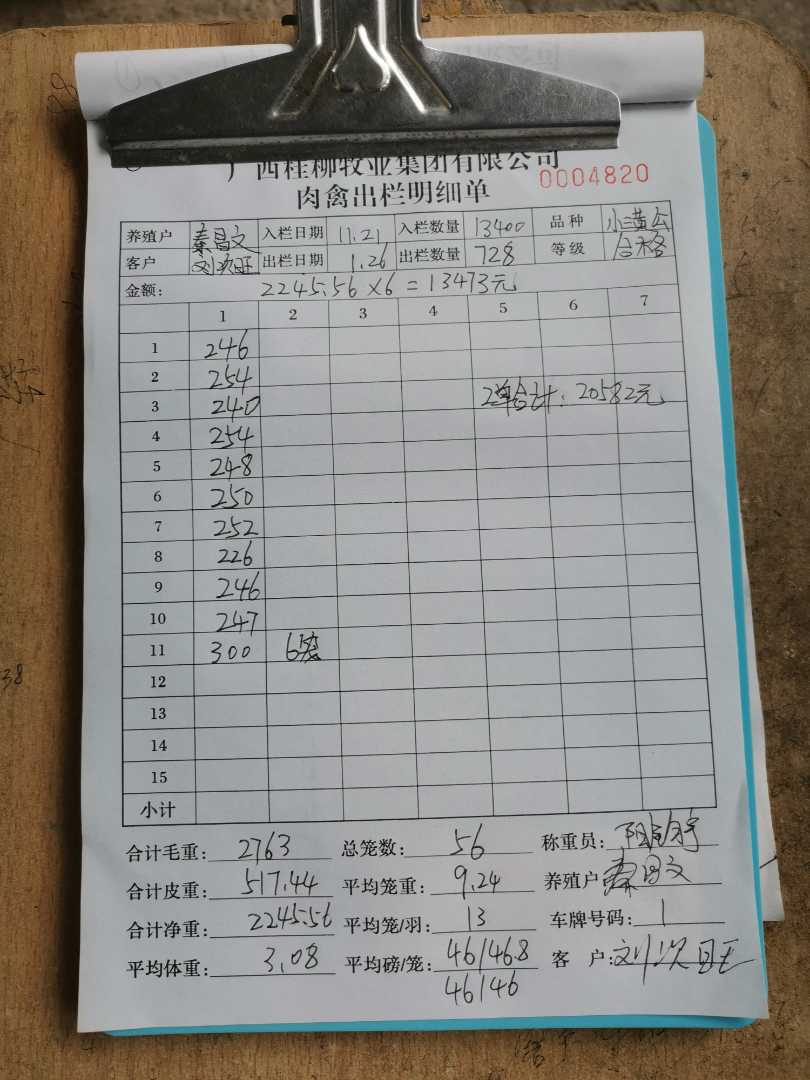 广西桂柳牧业集团有限公司
肉禽出栏明细单 0004820
养殖户 秦昌文 入栏日期 11.21 入栏数量 13400 品种 小三黄公
客户 刘次旺 出栏日期 1.26 出栏数量 728 等级 合格
金额: 2245.56×6=13473元
1 2 3 4 5 6 7
1 246
2 254
3 240 2单合计:20582元
4 254
5 248
6 250
7 252
8 226
9 246
10 247
11 300 6笼
12
13
14
15
小计
合计毛重: 2763 总笼数: 56 称重员:
合计皮重: 517.44 平均笼重: 9.24 养殖户 秦昌文
合计净重: 2245.56 平均笼/羽: 13 车牌号码: 1
平均体重: 3.08 平均磅/笼: 461468 客 户: 刘次旺
46146